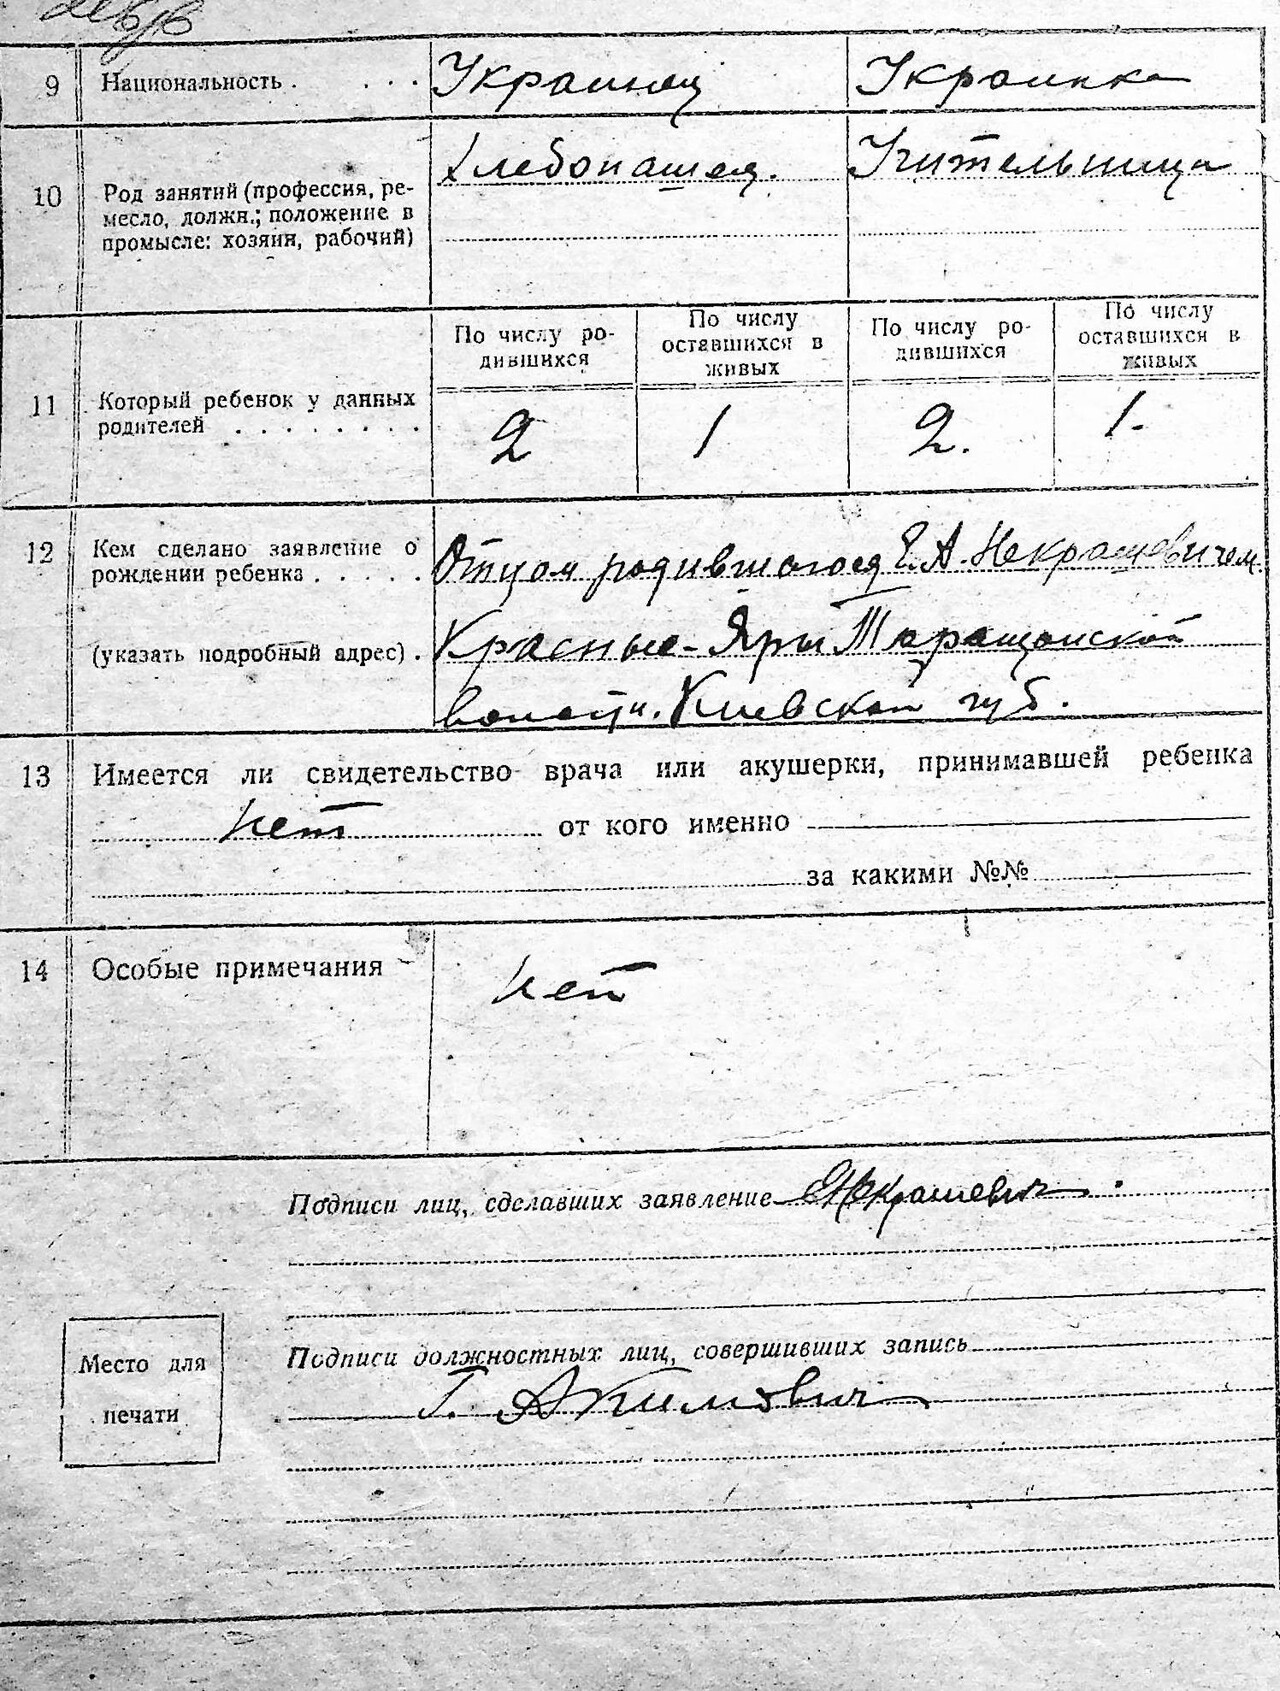 9 Национальность . . . . Украинец Украинка
10 Род занятий (профессия, ре-
месло, должн.; положение в
промысле: хозяин, рабочий)
Хлебопашец. Учительница
По числу ро-
дившихся
По числу
оставшихся в
живых
По числу ро-
дившихся
По числу
оставшихся в
живых
11 Который ребенок у данных
родителей . . . . . . . .
2 1 2. 1.
12 Кем сделано заявление о
рождении ребенка . . . . .
Отцом родившогося Е. А. Некрашевичем
(указать подробный адрес) . Красные-Яры Таращанской
волости. Киевской губ.
13 Имеется ли свидетельство врача или акушерки, принимавшей ребенка
нет от кого именно
за какими №№
14 Особые примечания нет
Подписи лиц, сделавших заявление ЕНекрашевич
Подписи должностных лиц, совершивших запись
Г. Акимович
Место для
печати